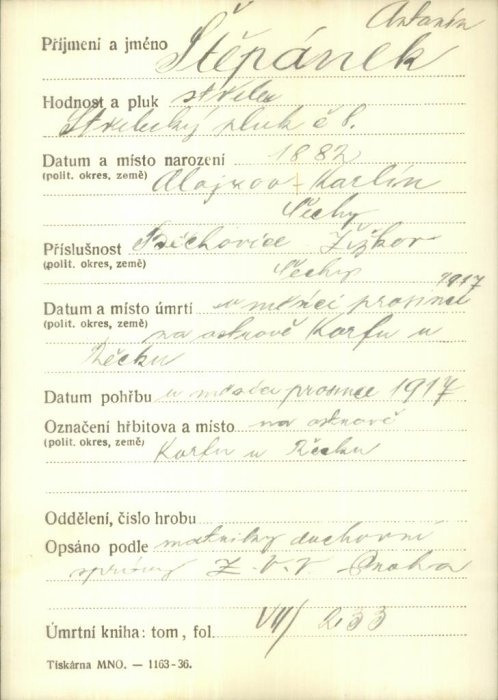 Antonín
Příjmení a jméno Štěpánek
Hodnost a pluk střelec
Střelecký pluk č 8.
Datum a místo narození 1882
(polit. okres, země) Alojzov - Karlín
Čechy
Příslušnost Běchovice Žižkov
(polit. okres, země) Čechy
1917
Datum a místo úmrtí v měsíci prosinci
(polit. okres, země) na ostrově Korfu v
Řecku
Datum pohřbu v měsíci prosince 1917
Označení hřbitova a místo na ostrově
(polit. okres, země) Korfu v Řecku
Oddělení, číslo hrobu
Opsáno podle matriky duchovní
správy Z. V. V. Praha
Úmrtní kniha: tom, fol. VII/ 233
Tiskárna MNO. — 1163-36.